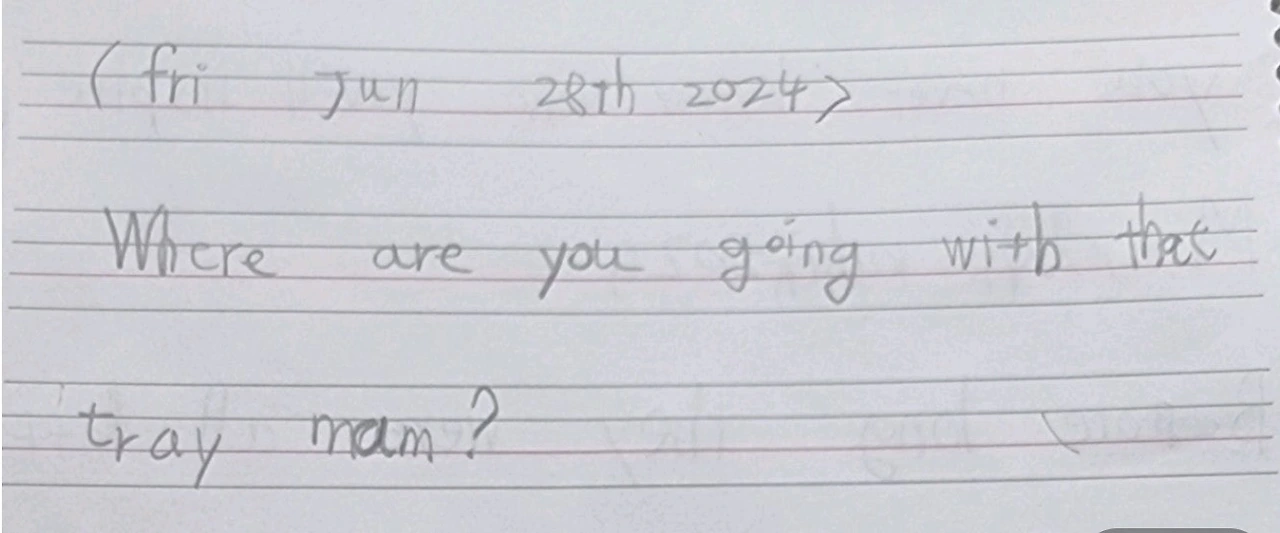 (fri Jun 28th 2024>
Where are you going with that
tray mam?